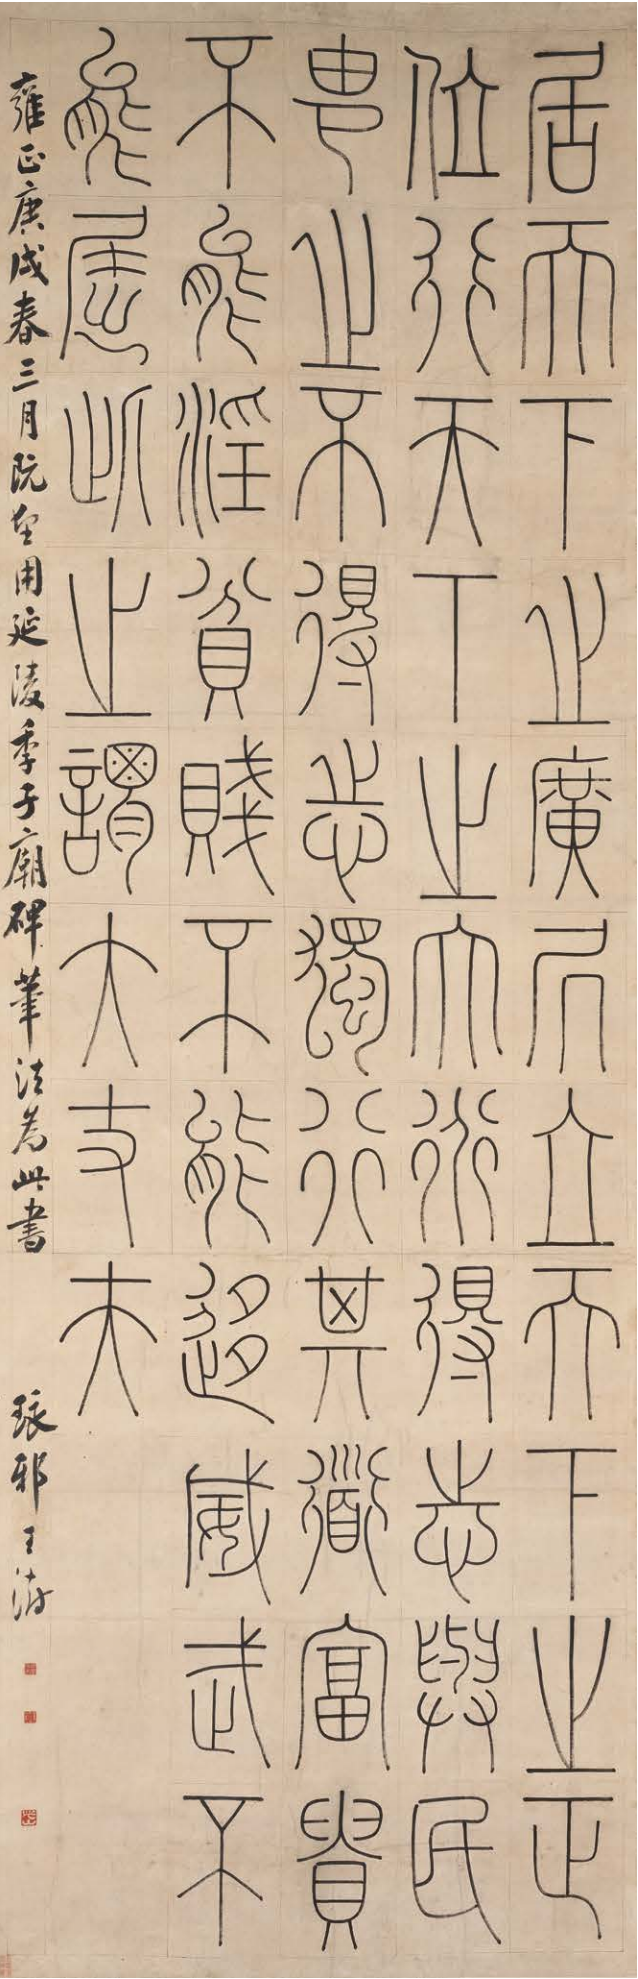 居天下之廣居立天下之正
位行天下之大道得志與民
由之不得志獨行其道富貴
不能淫貧賤不能移威武不
能屈此之謂大丈夫
雍正庚戌春三月既望用延陵季子廟碑筆法為此書
琅邪王澍